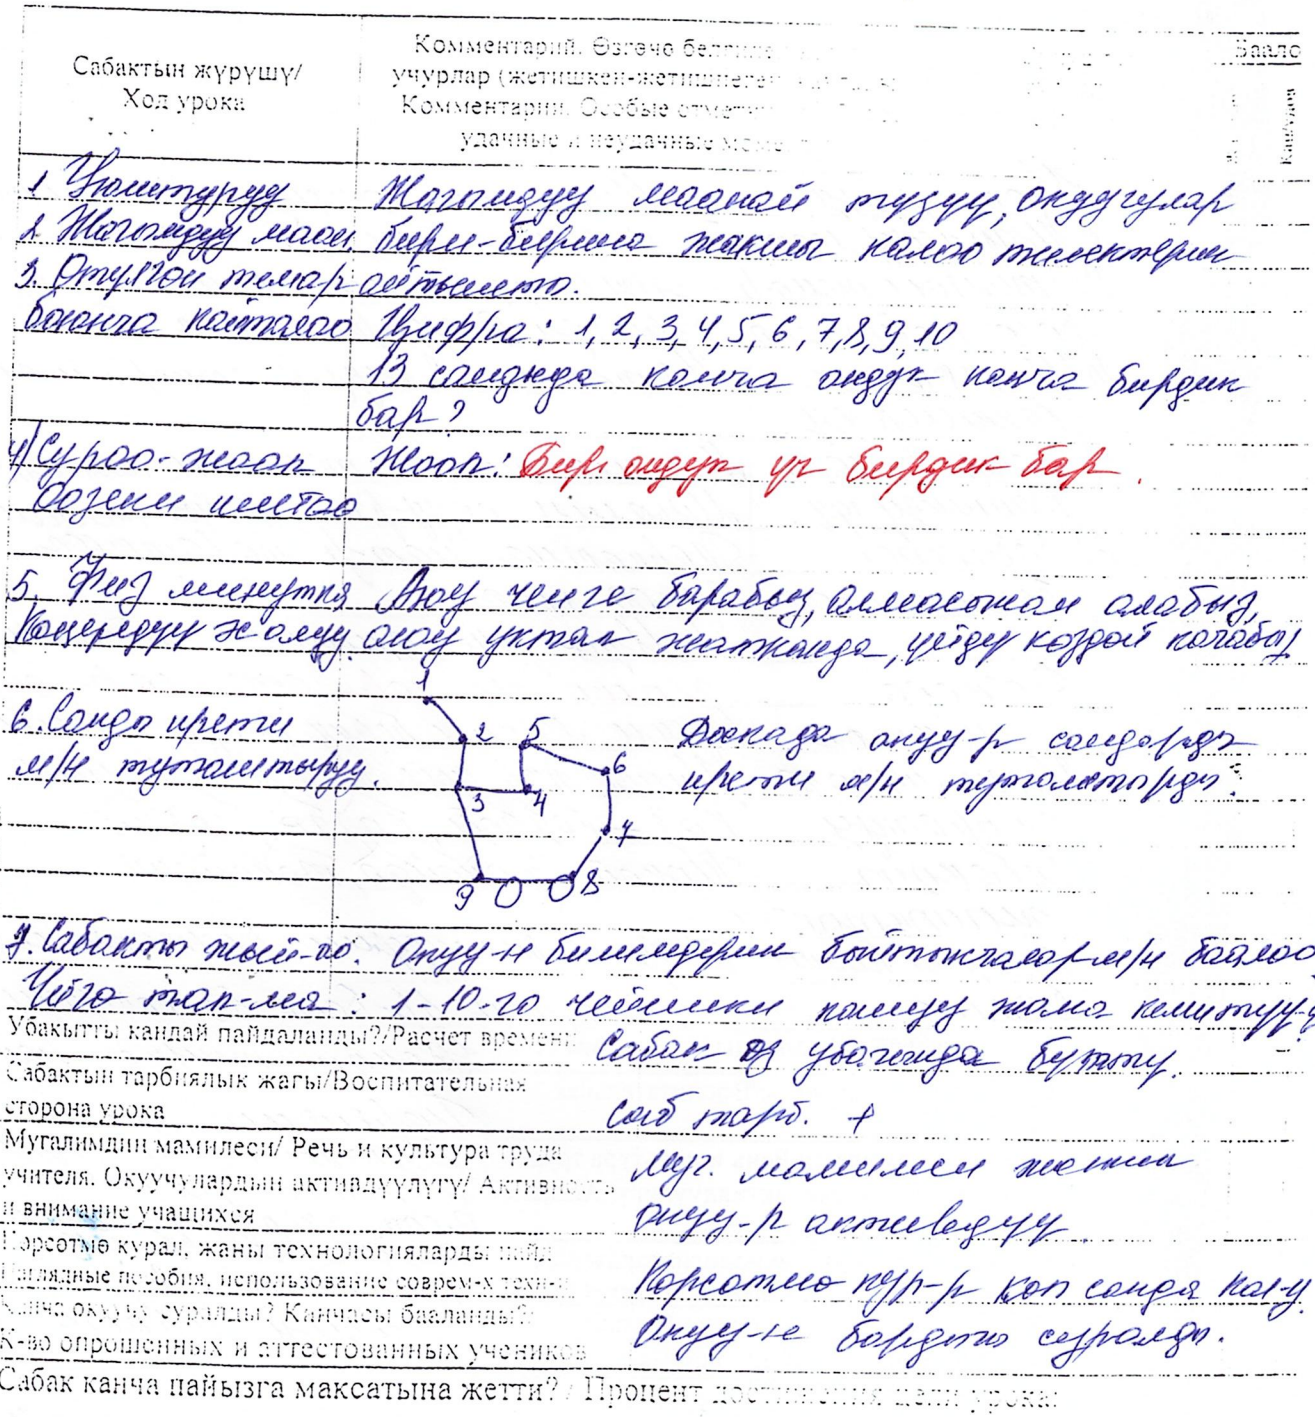 Сабактын жүрүшү/
Ход урока
Комментарий. Өзгөчө белгиле
учурлар (жетишкен-жетишпеген
Комментарии. Особые отмет
удачные и неудачные моме
Баало
1 Уюштуруу Жагымдуу маанай түзүү, окуучулар
2 Жагымдуу маан бири-бирине жакшы каалоо тилектерин
3. Өтүлгөн темар айтышты.
боюнча кайталоо Цифра: 1, 2, 3, 4, 5, 6, 7, 8, 9, 10
13 санында канча ондук канча бирдик
бар?
4) Суроо-жооп Жооп: Бир ондук үч бирдик бар.
оозеки иштөө
5. Физ минутка Аюу ченге барабыз, алмасынан алабыз,
Көңүлдүү жолу аюу уктап жатканда, үйдү көздөй качабыз
1
6. Санды ирети 2 5 Доскада окуу-р сандарды
м/н туташтыруу. 6 ирети м/н туташтырды.
3 4
7
9 8
7. Сабакты жый-оо. Окуу-н билимдерин быйтыкчалар м/н баалоо
Үйгө тап-ма: 1-10-го чейинки кошуу жана кемитүү
Убакытты кандай пайдаланды?/Расчет времени Сабак өз убагында бүттү.
Сабактын тарбиялык жагы/Воспитательная
сторона урока саб тарб. +
Мугалимдин мамилеси/ Речь и культура труда
учителя. Окуучулардын активдүүлүгү/ Активность Муг. мамилеси жакшы
и внимание учащихся окуу-р активдүү
Көрсөтмө курал, жаңы технологияларды пайд
Наглядные пособия, использование соврем-х техн- Көрсөтмө кур-р көп санда кол-у
Канча окуучу суралды? Канчасы бааланды?
К-во опрошенных и аттестованных учеников Окуу-н бардыгы суралды.
Сабак канча пайызга максатына жетти? / Процент достижения цели урока: